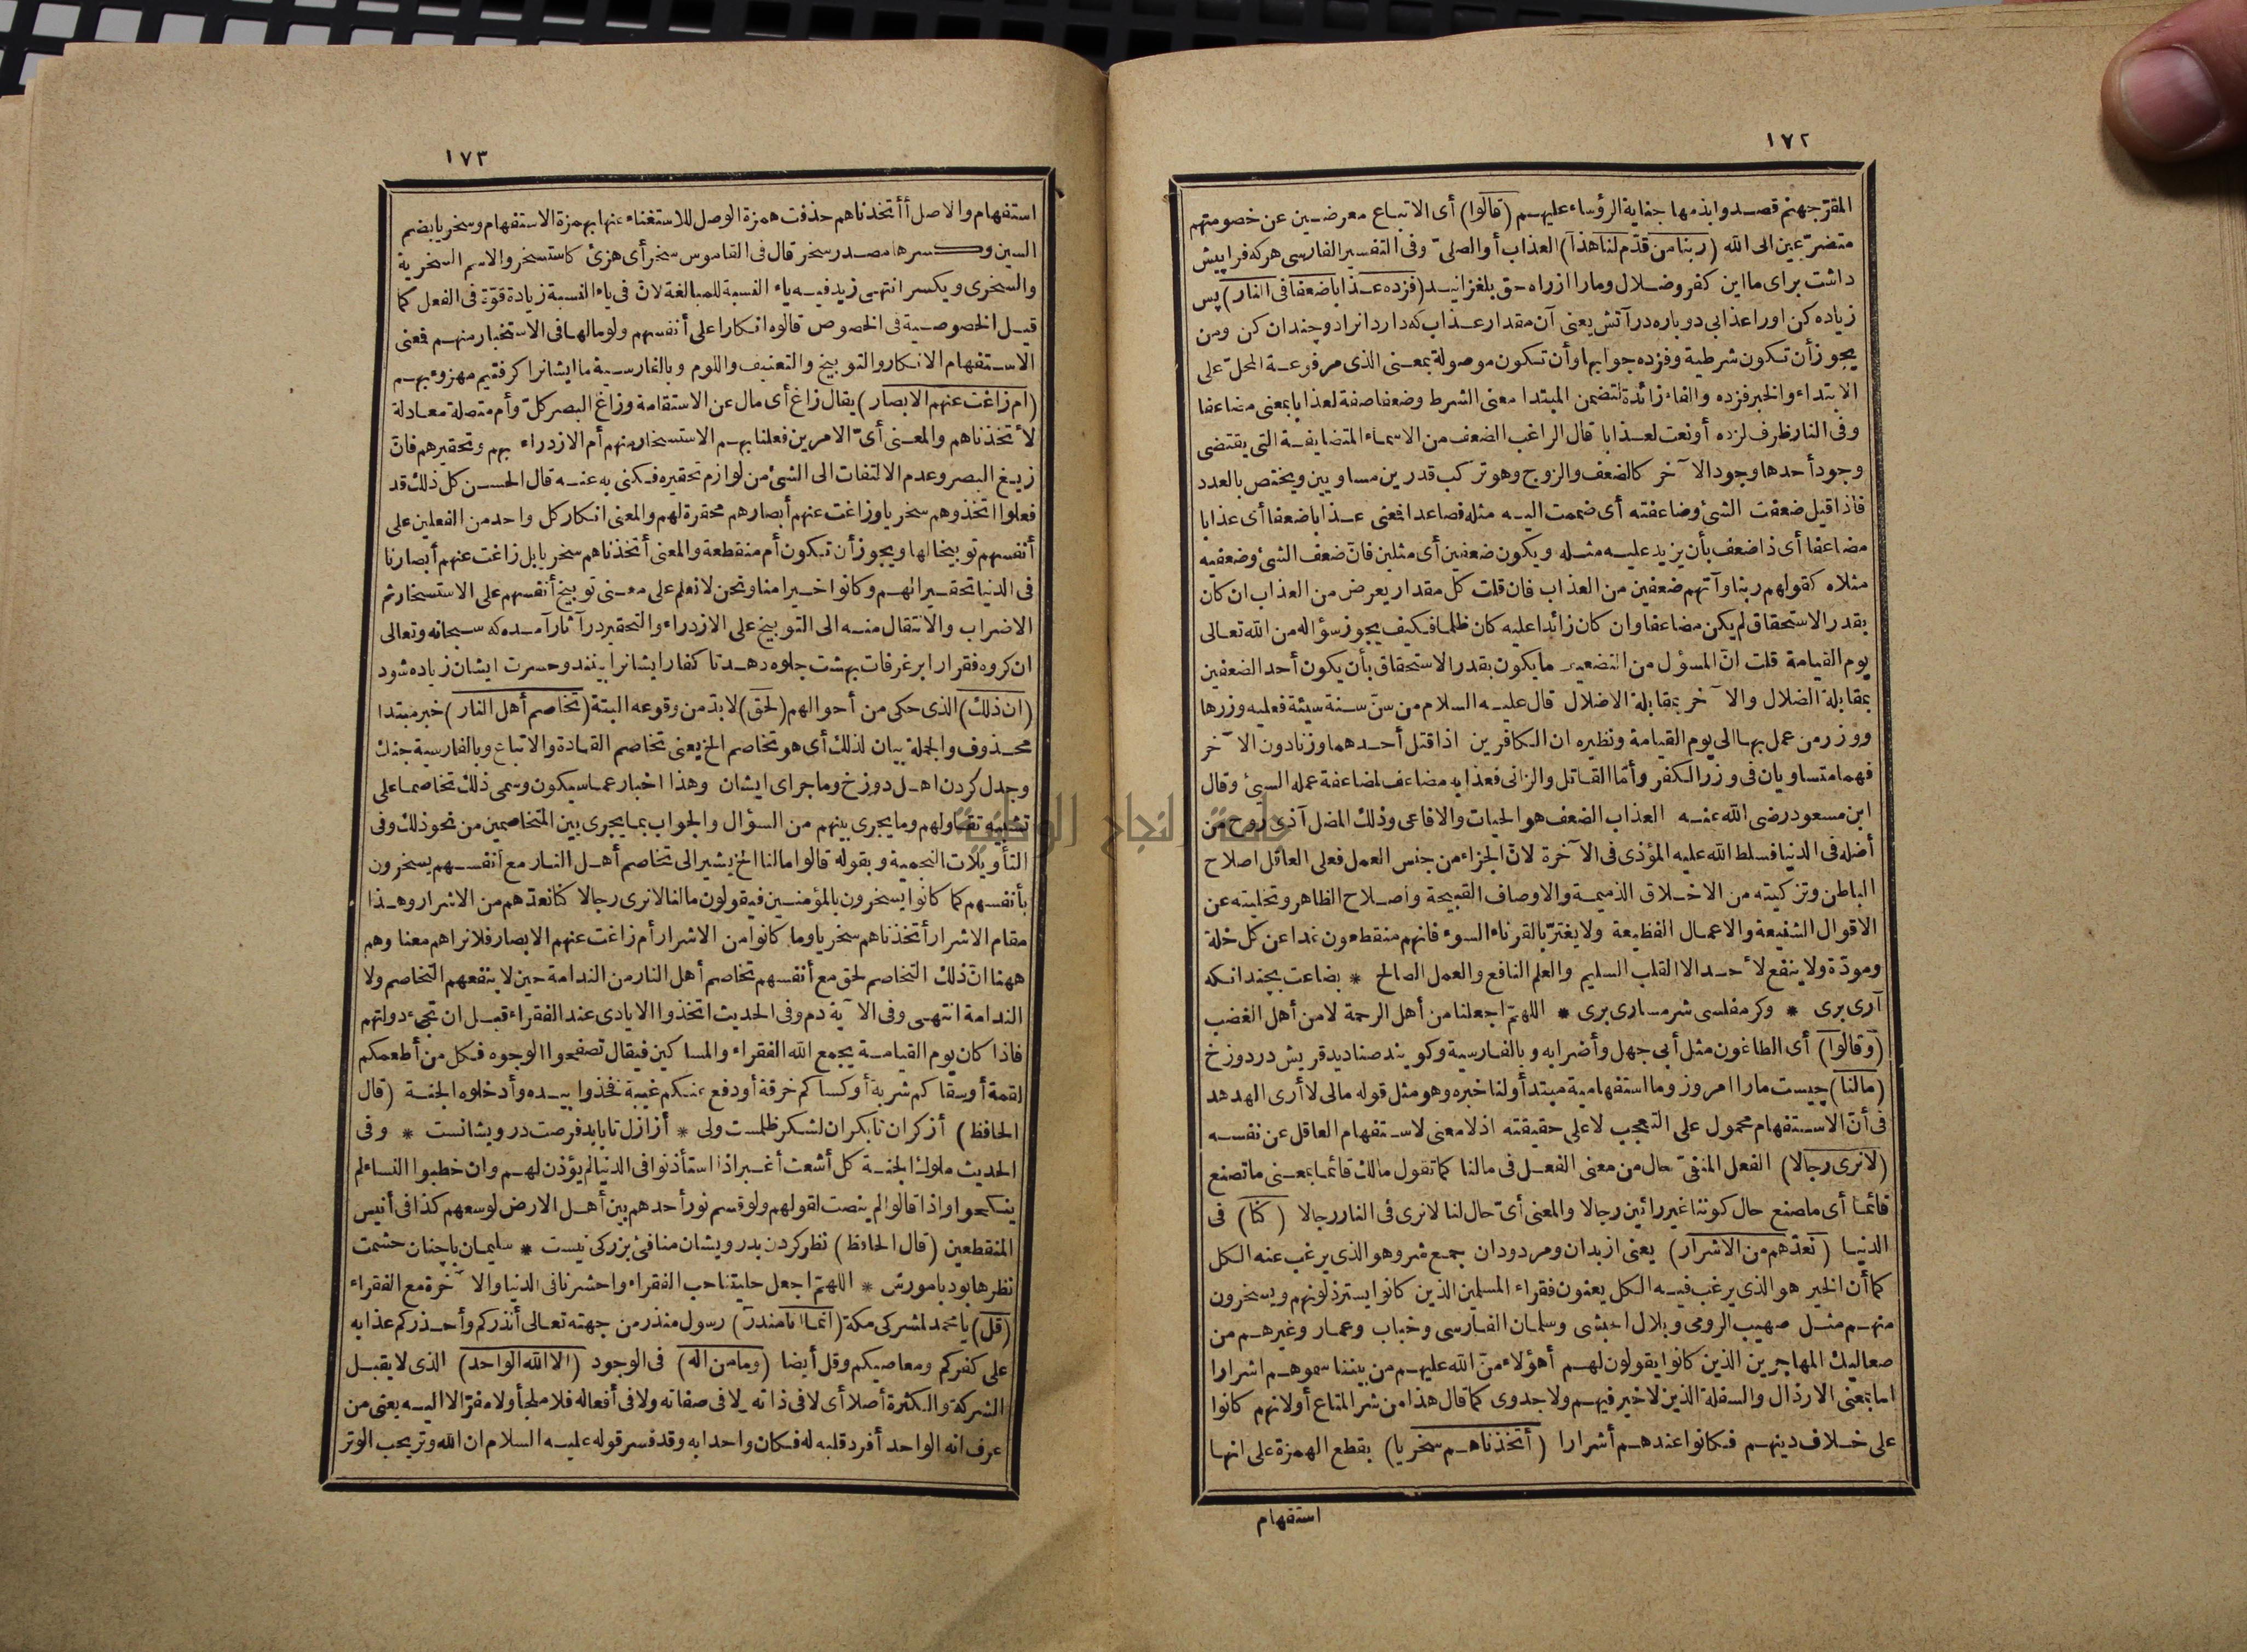 ١٧٢
المقر جهنم قصدوا بذمها جناية الرؤساء عليهم (قالوا) أى الاتباع معرضين عن خصومتهم
متضرّعين الى الله (ربنا من قدّم لنا هذا) العذاب أو الصلىّ وفى التفسير الفارسى هركه فرا پيش
داشت براى ما اين كفر وضلال ومارا ازراه حق بلغزانيد (فزده عذابا ضعفا فى النار) پس
زياده كن اورا عذابى دوباره در آتش يعنى آن مقدار عذاب كه دارد انرا دو چندان كن ومن
يجوز أن تكون شرطية وفزده جوابها وأن تكون موصولة بمعنى الذى مرفوعة المحلّ على
الابتداء والخبر فزده والفاء زائدة لتضمن المبتدا معنى الشرط وضعفا صفة لعذابا بمعنى مضاعفا
وفى النار ظرف لزده أو نعت لعذابا قال الراغب الضعف من الاسماء المتضايفة التى يقتضى
وجود أحدها وجود الآخر كالضعف والزوج وهو تركب قدرين مساويين ويختص بالعدد
فاذا قيل ضعفت الشئ وضاعفته أى ضممت اليه مثله فصاعدا فمعنى عذابا ضعفا أى عذابا
مضاعفا أى ذا ضعف بأن يزيد عليه مثله ويكون ضعفين أى مثلين فانّ ضعف الشئ وضعفيه
مثلاه كقولهم ربنا وآتهم ضعفين من العذاب فان قلت كل مقدار يعرض من العذاب ان كان
بقدر الاستحقاق لم يكن مضاعفا وان كان زائدا عليه كان ظلما فكيف يجوز سؤاله من الله تعالى
يوم القيامة قلت انّ المسؤل من التضعيف ما يكون بقدر الاستحقاق بأن يكون أحد الضعفين
بمقابلة الضلال والآخر بمقابلة الاضلال قال عليه السلام من سنّ سنة سيئة فعليه وزرها
ووزر من عمل بها الى يوم القيامة ونظيره ان الكافرين اذا قتل أحدهما وزنا دون الآخر
فهما متساويان فى وزر الكفر وأمّا القاتل والزانى فعذابه مضاعف لمضاعفة عمله السيئ وقال
ابن مسعود رضى الله عنه العذاب الضعف هو الحيات والافاعى وذلك المضل آذى روح من
أضله فى الدنيا فسلط الله عليه المؤذى فى الآخرة لانّ الجزاء من جنس العمل فعلى العاقل اصلاح
الباطن وتزكيته من الاخلاق الذميمة والاوصاف القبيحة واصلاح الظاهر وتخليته عن
الاقوال الشنيعة والاعمال الفظيعة ولا يغترّ بالقرناء السوء فانهم منقطعون غدا عن كل خلة
ومودّة ولا ينفع لأحد الا القلب السليم والعلم النافع والعمل الصالح * بضاعت بچندانكه
آرى برى * وكر مفلسى شرمسارى برى * اللهمّ اجعلنا من أهل الرحمة لا من أهل الغضب
(وقالوا) أى الطاغون مثل أبى جهل وأضرابه وبالفارسية وكويند صناديد قريش در دوزخ
(مالنا) چيست مارا امروز وما استفهامية مبتدأ ولنا خبره وهو مثل قوله مالى لا أرى الهدهد
فى أنّ الاستفهام محمول على التعجب لا على حقيقته اذ لا معنى لاستفهام العاقل عن نفسه
(لا نرى رجالا) الفعل المنفىّ حال من معنى الفعل فى مالنا كما تقول مالك قائما بمعنى ما تصنع
قائما أى ما صنع حال كوننا غير رائين رجالا والمعنى أىّ حال لنا لا نرى فى النار رجالا (كنا) فى
الدنيا (نعدّهم من الاشرار) يعنى از بدان ومردودان جمع شر وهو الذى يرغب عنه الكل
كما أن الخير هو الذى يرغب فيه الكل يعنون فقراء المسلمين الذين كانوا يسترذلونهم ويسخرون
منهم مثل صهيب الرومى وبلال الحبشى وسلمان الفارسى وخباب وعمار وغيرهم من
صعاليك المهاجرين الذين كانوا يقولون لهم أهؤلاء منّ الله عليهم من بيننا سموهم اشرارا
اما بمعنى الارذال والسفلة الذين لا خير فيهم ولا جدوى كما قال هذا من شر المتاع أو لانهم كانوا
على خلاف دينهم فكانوا عندهم أشرارا (أتخذناهم سخريا) بقطع الهمزة على انها
استفهام
١٧٣
استفهام والاصل أأتخذناهم حذفت همزة الوصل للاستغناء عنها بهمزة الاستفهام وسخريا بضم
السين وكسرها مصدر سخر قال فى القاموس سخر أى هزئ كاستسخر والاسم السخرية
والسخرى ويكسر انتهى زيد فيه ياء النسبة للمبالغة لانّ فى ياء النسبة زيادة قوّة فى الفعل كما
قيل الخصوصية فى الخصوص قالوه انكارا على أنفسهم ولومالها فى الاستخبار منهم فمعنى
الاستفهام الانكار والتوبيخ والتعنيف واللوم وبالفارسية ما ايشانرا كرفتيم مهزوء بهم
(ام زاغت عنهم الابصار) يقال زاغ أى مال عن الاستقامة وزاغ البصر كلّ وأم متصلة معادلة
لأتخذناهم والمعنى أىّ الامرين فعلنا بهم الاستسخار منهم أم الازدراء بهم وتحقيرهم فانّ
زيغ البصر وعدم الالتفات الى الشئ من لوازم تحقيره فكنى به عنه قال الحسن كل ذلك قد
فعلوا اتخذوهم سخريا وزاغت عنهم أبصارهم محقرة لهم والمعنى انكار كل واحد من الفعلين على
أنفسهم توبيخا لها ويجوز أن تكون أم منقطعة والمعنى أتخذناهم سخريا بل زاغت عنهم أبصارنا
فى الدنيا تحقيرا لهم وكانوا خيرا منا ونحن لا نعلم على معنى توبيخ أنفسهم على الاستسخار ثم
الاضراب والانتقال منه الى التوبيخ على الازدراء والتحقير در آثار آمده كه سبحانه وتعالى
ان كروه فقرارا بر غرفات بهشت جلوه دهد تا كفار ايشانرا بينند وحسرت ايشان زياده شود
(ان ذلك) الذى حكى من أحوالهم (لحق) لا بدّ من وقوعه البتة (تخاصم أهل النار) خبر مبتدا
محذوف والجملة بيان لذلك أى هو تخاصم الخ يعنى تخاصم القادة والاتباع وبالفارسية جنك
وجدل كردن اهل دوزخ وماجراى ايشان وهذا اخبار عما سيكون وسمى ذلك تخاصما على
تشبيه تقاولهم وما يجرى بينهم من السؤال والجواب بما يجرى بين المتخاصمين من نحو ذلك وفى
التأويلات النجمية وبقوله قالوا مالنا الخ يشير الى تخاصم أهل النار مع أنفسهم يسخرون
بأنفسهم كما كانوا يسخرون بالمؤمنين فيقولون مالنا لا نرى رجالا كنا نعدّهم من الاشرار وهذا
مقام الاشرار أتخذناهم سخريا وما كانوا من الاشرار أم زاغت عنهم الابصار فلا نراهم معنا وهم
ههنا انّ ذلك التخاصم لحق مع أنفسهم تخاصم أهل النار من الندامة حين لا ينفعهم التخاصم ولا
الندامة انتهى وفى الآية ذم وفى الحديث اتخذوا الايادى عند الفقراء قبل ان تجىء دولتهم
فاذا كان يوم القيامة يجمع الله الفقراء والمساكين فيقال تصفحوا الوجوه فكل من أطعمكم
لقمة أوسقاكم شربة أو كساكم خرقة أو دفع عنكم غيبة فخذوا بيده وأدخلوه الجنة (قال
الحافظ) أز كران تا بكران لشكر ظلمست ولى * أز ازل تا بابد فرصت درويشانست * وفى
الحديث ملوك الجنة كل أشعث أغبر اذا استأذنوا فى الدنيا لم يؤذن لهم وان خطبوا النساء لم
ينكحوا واذا قالوا لم ينصت لقولهم ولو قسم نور أحدهم بين أهل الارض لوسعهم كذا فى أنيس
المنقطعين (قال الحافظ) نظر كردن بدرويشان منافئ بزركى نيست * سليمان باچنان حشمت
نظرها بود بامورش * اللهمّ اجعل حليتنا حب الفقراء واحشرنا فى الدنيا والآخرة مع الفقراء
(قل) يا محمد لمشركى مكة (انما انا منذر) رسول منذر من جهته تعالى أنذركم وأحذركم عذابه
على كفركم ومعاصيكم وقل أيضا (وما من اله) فى الوجود (الا الله الواحد) الذى لا يقبل
الشركة والكثرة أصلا أى لا فى ذاته ولا فى صفاته ولا فى أفعاله فلا ملجأ ولا مفرّ الا اليه يعنى من
عرف انه الواحد أفرد قلبه له فكان واحدا به وقد فسر قوله عليه السلام ان الله وتر يحب الوتر